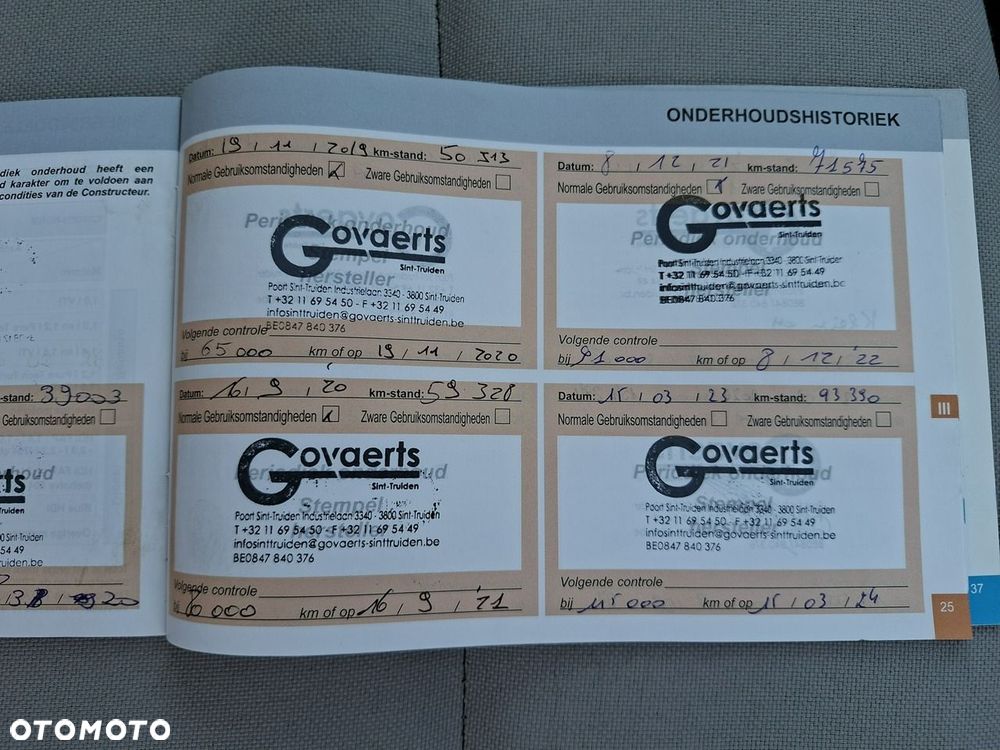 ONDERHOUDSHISTORIEK
diek onderhoud heeft een
d karakter om te voldoen aan
condities van de Constructeur.
-stand: 39003
Gebruiksomstandigheden
houd
ts
Sint-Truiden
00 Sint-Truiden
54 49
uiden.be
20
Datum: 19 / 11 / 2019 km-stand: 50 313
Normale Gebruiksomstandigheden Zware Gebruiksomstandigheden
Periodiek onderhoud
Stempel
Hersteller
Govaerts
Sint-Truiden
Poort Sint-Truiden Industrielaan 3340 - 3800 Sint-Truiden
T +32 11 69 54 50 - F +32 11 69 54 49
infosinttruiden@govaerts-sinttruiden.be
BE0847 840 376
Volgende controle
bij 65 000 km of op 19 / 11 / 2020
Datum: 16 / 9 / 20 km-stand: 59 328
Normale Gebruiksomstandigheden Zware Gebruiksomstandigheden
Periodiek onderhoud
Stempel
Hersteller
Govaerts
Sint-Truiden
Poort Sint-Truiden Industrielaan 3340 - 3800 Sint-Truiden
T +32 11 69 54 50 - F +32 11 69 54 49
infosinttruiden@govaerts-sinttruiden.be
BE0847 840 376
Volgende controle
km of op 16 / 9 / '21
Datum: 8 / 12 / 21 km-stand: 71575
Normale Gebruiksomstandigheden Zware Gebruiksomstandigheden
Periodiek onderhoud
Govaerts
Sint-Truiden
Poort Sint-Truiden Industrielaan 3340 - 3800 Sint-Truiden
T +32 11 69 54 50 - F +32 11 69 54 49
infosinttruiden@govaerts-sinttruiden.be
BE0847 840 376
Volgende controle
bij 91 000 km of op 8 / 12 / '22
Datum: 15 / 03 / 23 km-stand: 93 390
Normale Gebruiksomstandigheden Zware Gebruiksomstandigheden
Periodiek onderhoud
Stempel
Hersteller
Govaerts
Sint-Truiden
Poort Sint-Truiden Industrielaan 3340 - 3800 Sint-Truiden
T +32 11 69 54 50 - F +32 11 69 54 49
infosinttruiden@govaerts-sinttruiden.be
BE0847 840 376
Volgende controle
bij 115 000 km of op 15 / 03 / 24
III
25
37
OTOMOTO